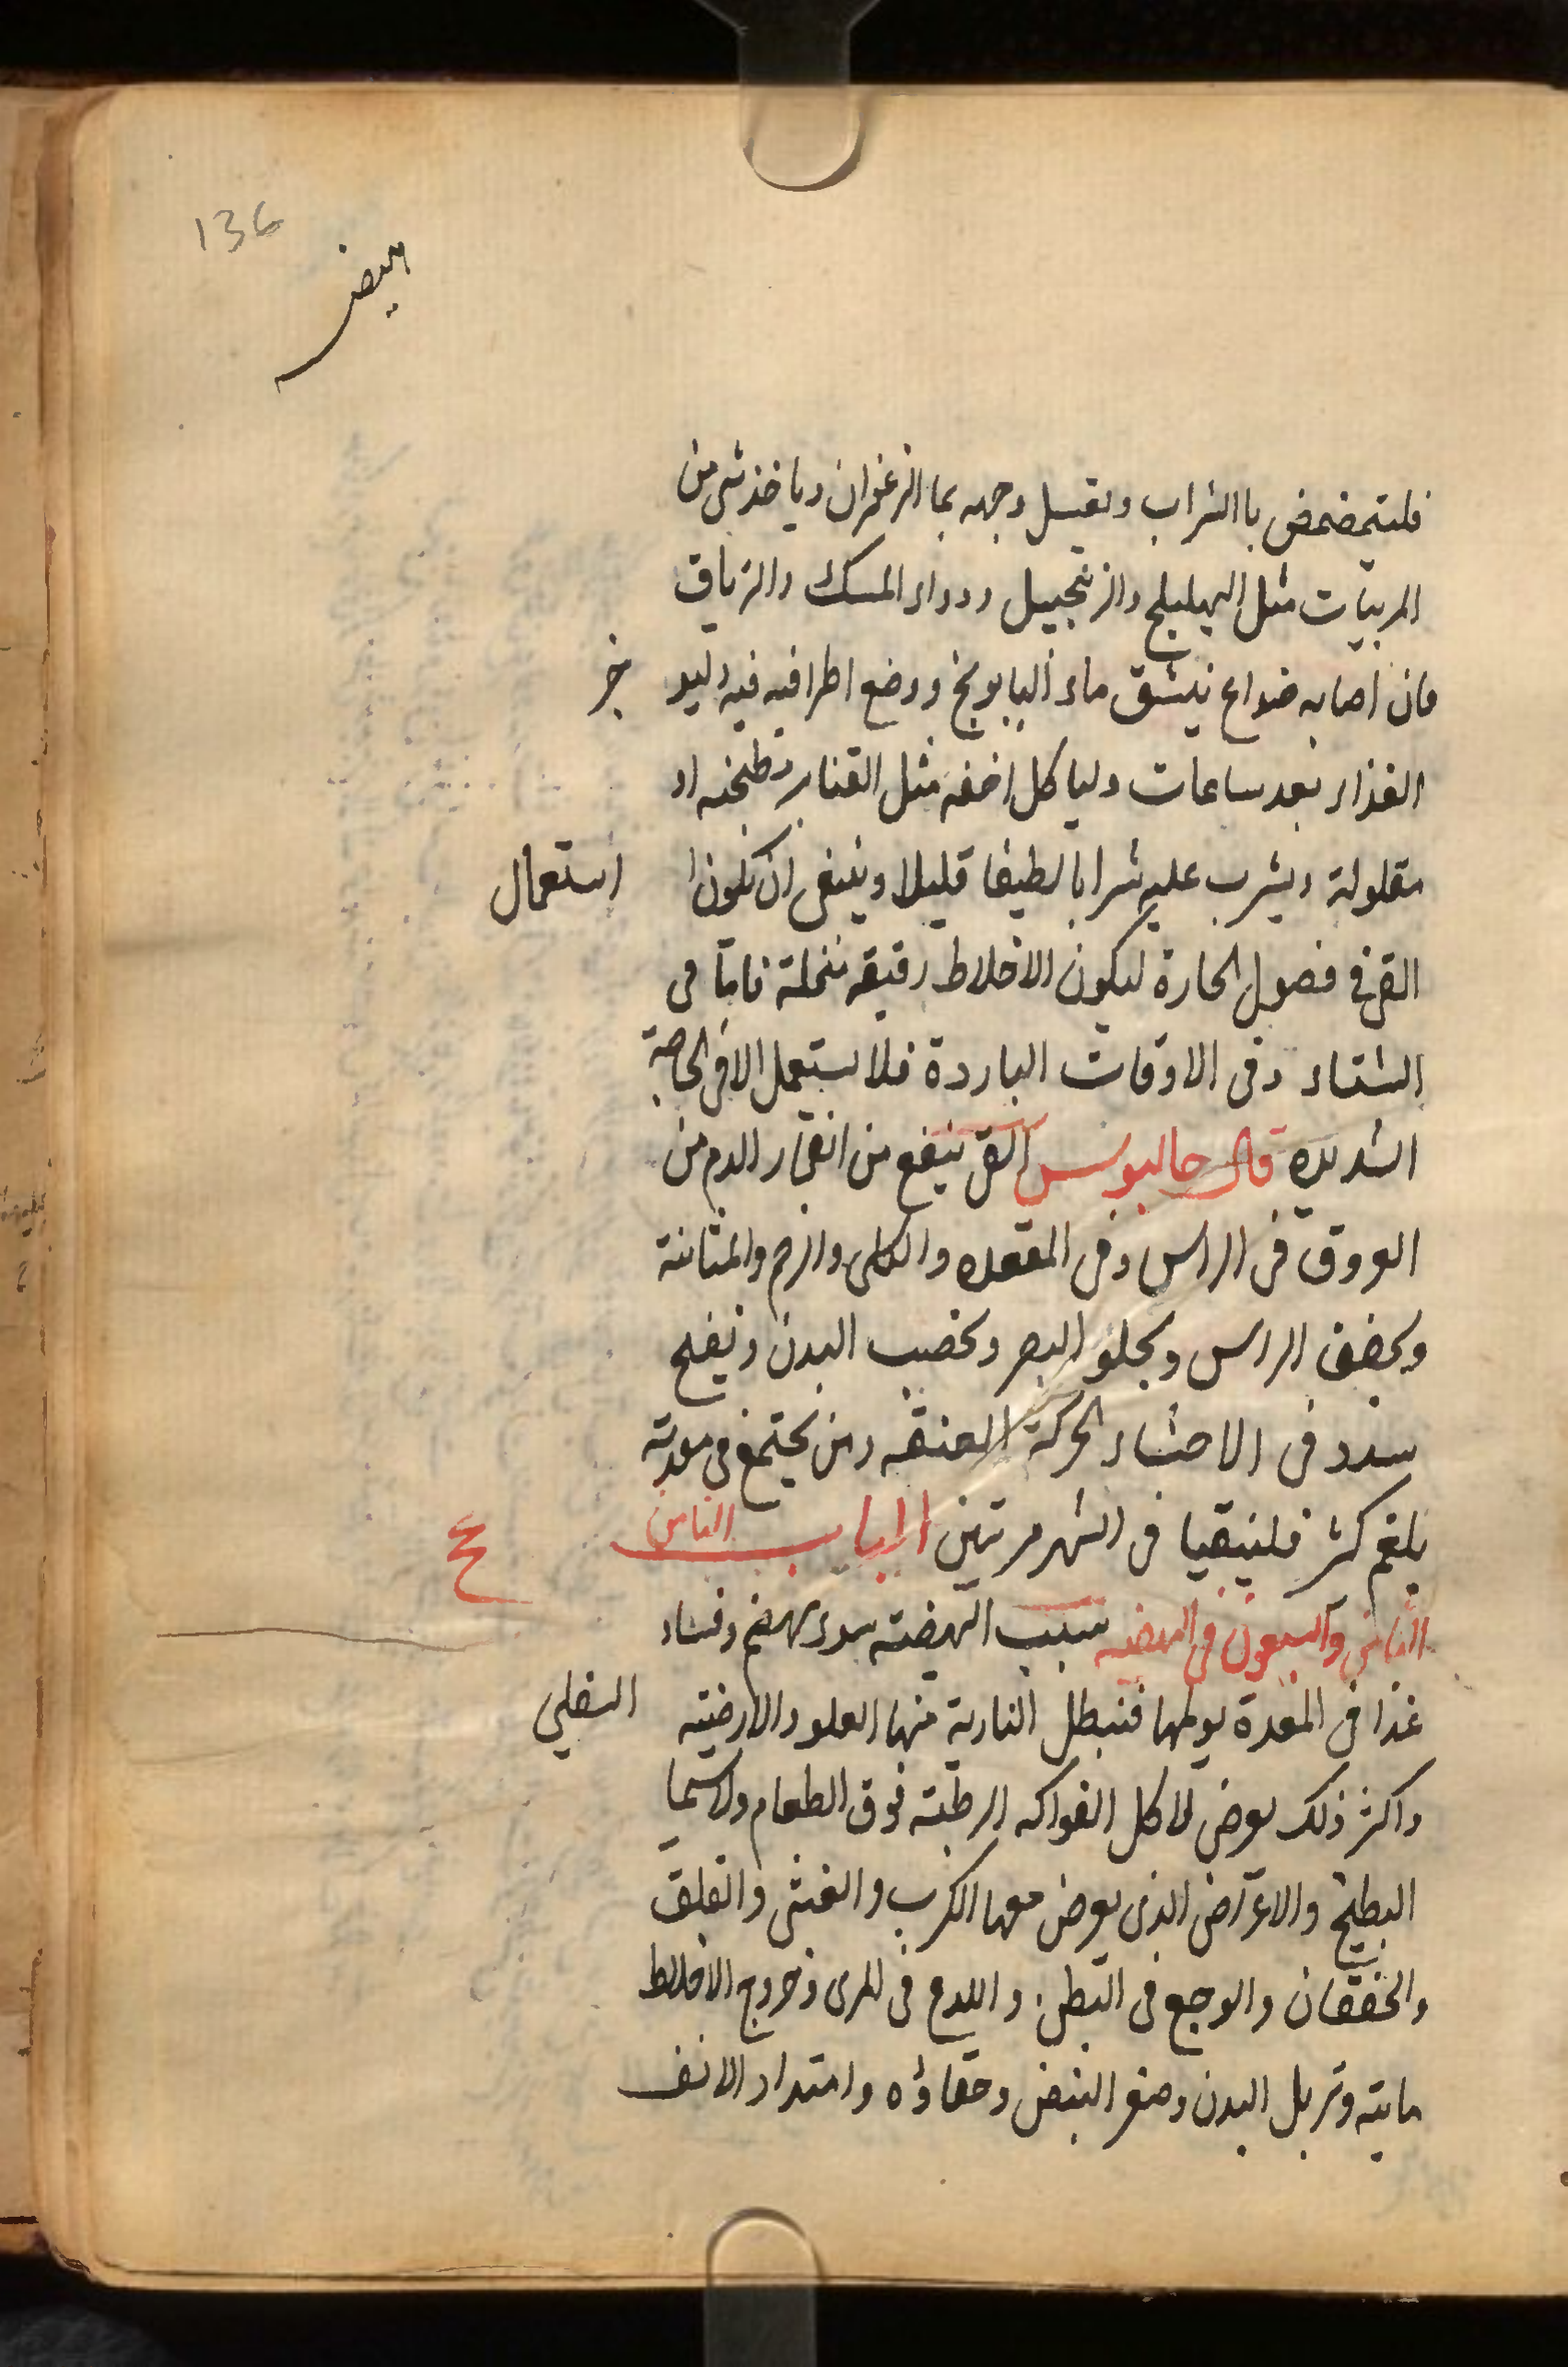 136
الهيضه
فليتمضمض باالشراب ويغسل وجهه بما الزعفران وياخذ شى من
المربيات مثل الهليلج والزنجبيل ودواء المسك والترياق
فان اصابه صداع نيشق ماء البابونج ووضع اطرافيه فيه وليو خر
الغذاء بعد ساعات ولياكل اخفه مثل القنابر مطبخنه او
مقلولة ويشرب عليه شرابا لطيفا قليلا وينبغى ان يكون استعمال
القى فى فصول الحارة ليكون الاخلاط رقيقه منحلة فاما فى
الشتاء وفى الاوقات الباردة فلا يستعمل الا فى الحاجة
الشديده قال جالينوس القى ينفع من انفجار الدم من
العروق فى الراس وفى المقعده والكلى والرحم والمثانة
ويخفف الراس ويجلو البصر ويخصب البدن وتفتح
سدد فى الاحشاء الحركة العنيفه ومن يجتمع فى معدته
بلغم كثير فليتقيا فى الشهر مرتين الباب الثامن
ع
الثامن والسبعون فى الهيضه سبب الهيضته سوء هضم وفساد
غذا فى المعدة يولمها فتبطل النارية منها العلو والارضيته السفلي
واكثر ذلك يعرض لاكل الفواكه الرطبته فوق الطعام ولاسيما
البطيخ والاعراض الذى يعرض معها الكرب والغثى والقلق
والخفقان والوجع فى البطن واللدع فى المرى وخروج الاخلاط
مايته وتربل البدن وصغر النبض وخفاؤه وامتداد الانف